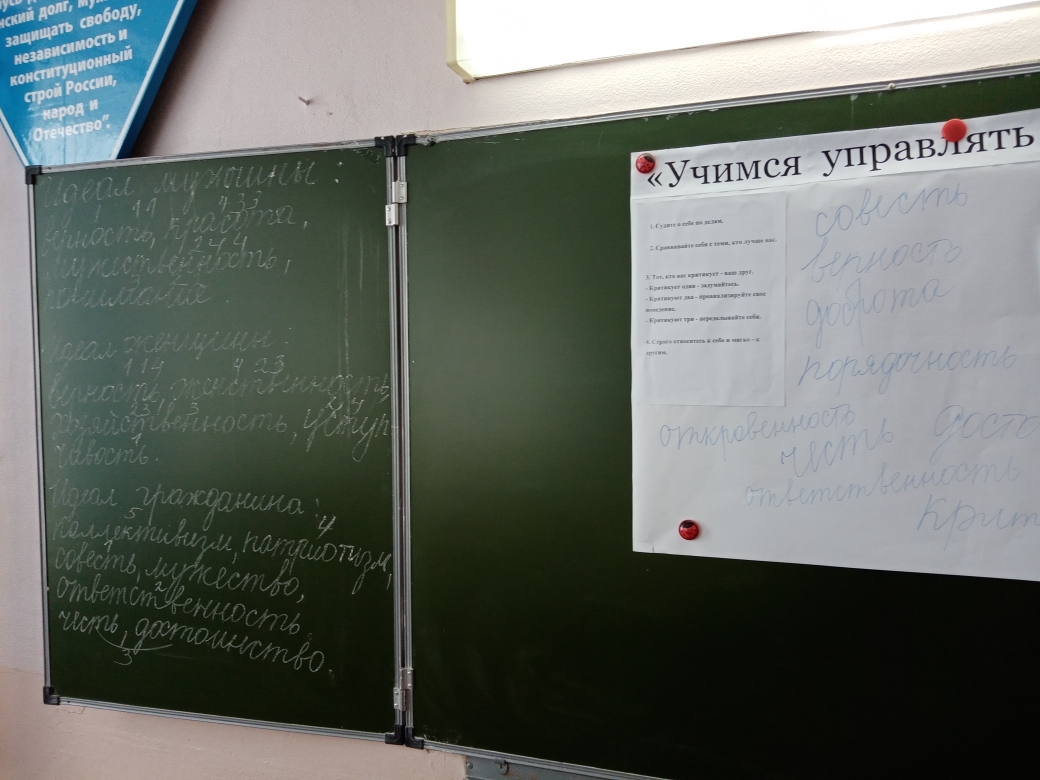 нский долг, муж
защищать свободу,
независимость и
конституционный
строй России,
народ и
Отечество".
Идеал мужчины:
11 4 3 3
верность, красота,
2 4 4
мужественность,
Идеал женщины:
1 1 4 4 2 3
верность, женственность,
хозяйственность, уступ-
чивость.
Идеал гражданина:
5 4
коллективизм, патриотизм,
совесть, мужество,
2
ответственность
честь, достоинство.
3
«Учимся управлять
1. Судите о себе по делам.
2. Сравнивайте себя с теми, кто лучше вас.
3. Тот, кто вас критикует - ваш друг.
- Критикует один - задумайтесь.
- Критикуют два - проанализируйте свое
поведение.
- Критикуют три - переделывайте себя.
4. Строго относитесь к себе и мягко - к
другим.
совесть
верность
доброта
порядочность
откровенность
честь досто
ответственность
Крит